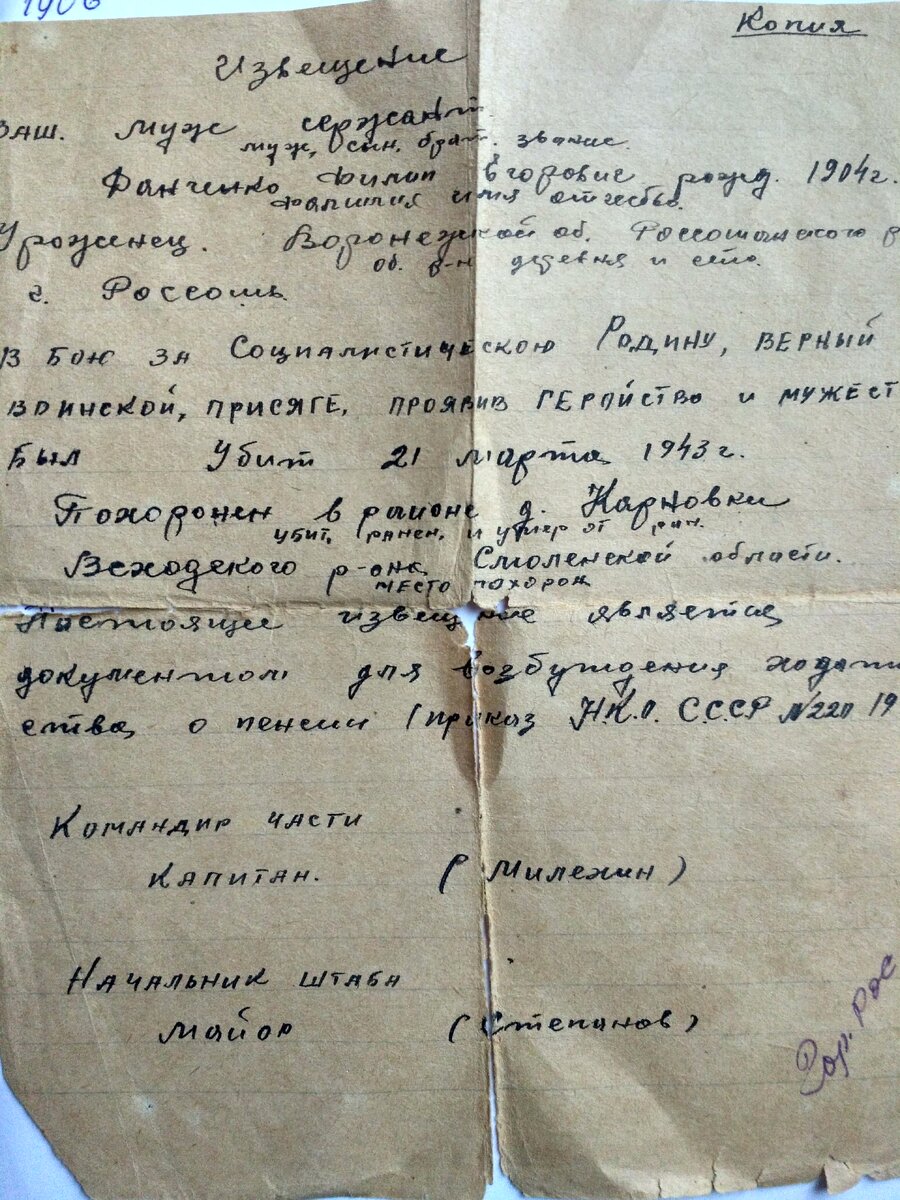 1906
Копия
Извещение
Ваш. муж сержант
муж, сын. брат. звание.
Фанченко Филип Егоровис рожд. 1904г.
Фамилия имя отчество.
Урожинец. Воронежской об. Россошанского р
об. р-н деревня и село.
г. Россошь
В бою за Социалистическою Родину, верный
воинской, присяге, проявив геройство и мужест
был Убит 21 марта 1943г.
Похоронен в районе д. Карповки
убит, ранен. и умер от ран.
Всходского р-она Смоленской области.
место похорон
Настоящие извещение является
документом для возбуждения ходат
ства о пенсии (приказ Н.К.О. С.С.С.Р №220 19
Командир части
Капитан. (Милехин)
Начальник штаба
Майор (Степанов)
Гор. Рос